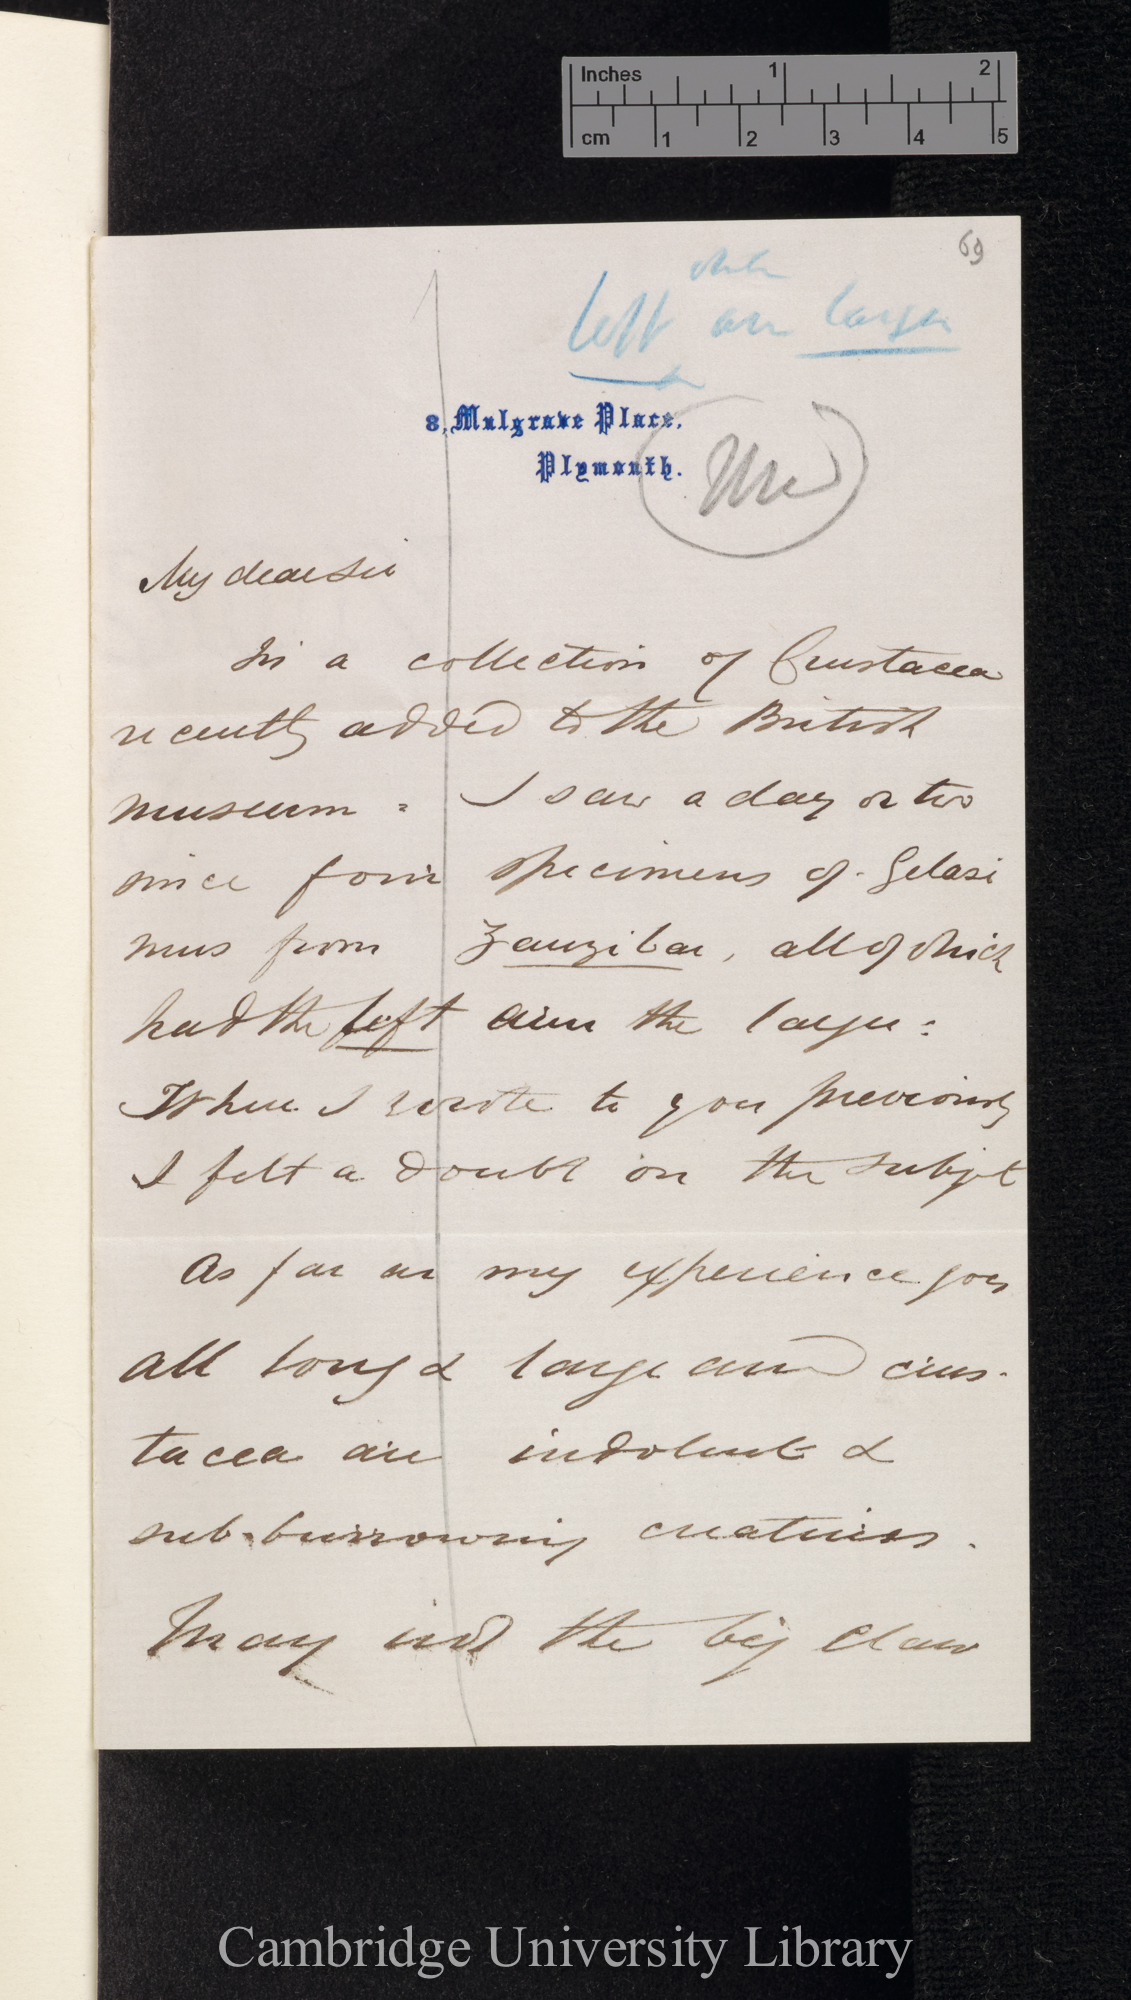 Inches 1 2
cm 1 2 3 4 5
69
left arm larger
8, Mulgrave Place.
Plymouth.
My dear Sir
In a collection of Crustacea
recently added to the British
museum = I saw a day or two
since four specimens of Gelasi
mus from Zanzibar, all of which
had the left arm the larger:
When I wrote to you previously
I felt a doubt on the subjet
As far as my experience goes
all long & large armd crus-
tacea are indolent &
sub-burrowing creatures.
May not the big claw
Cambridge University Library